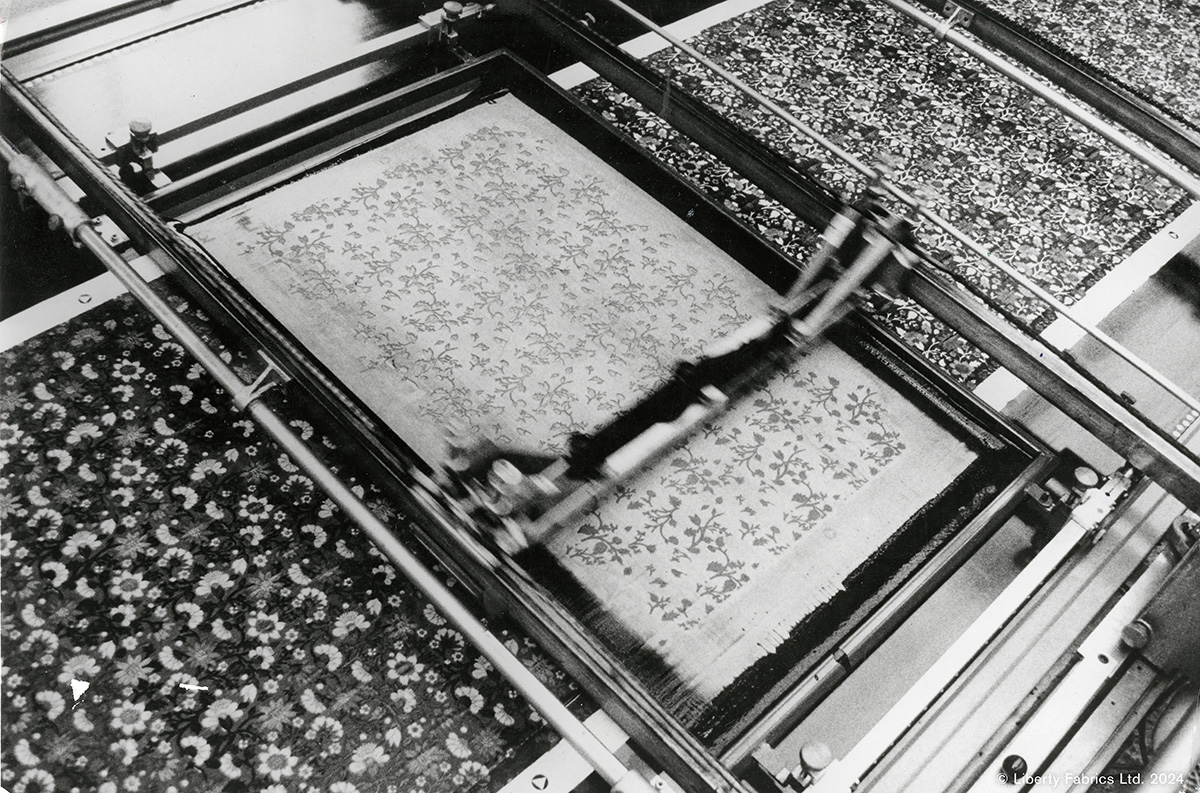 © Liberty Fabrics Ltd. 2024